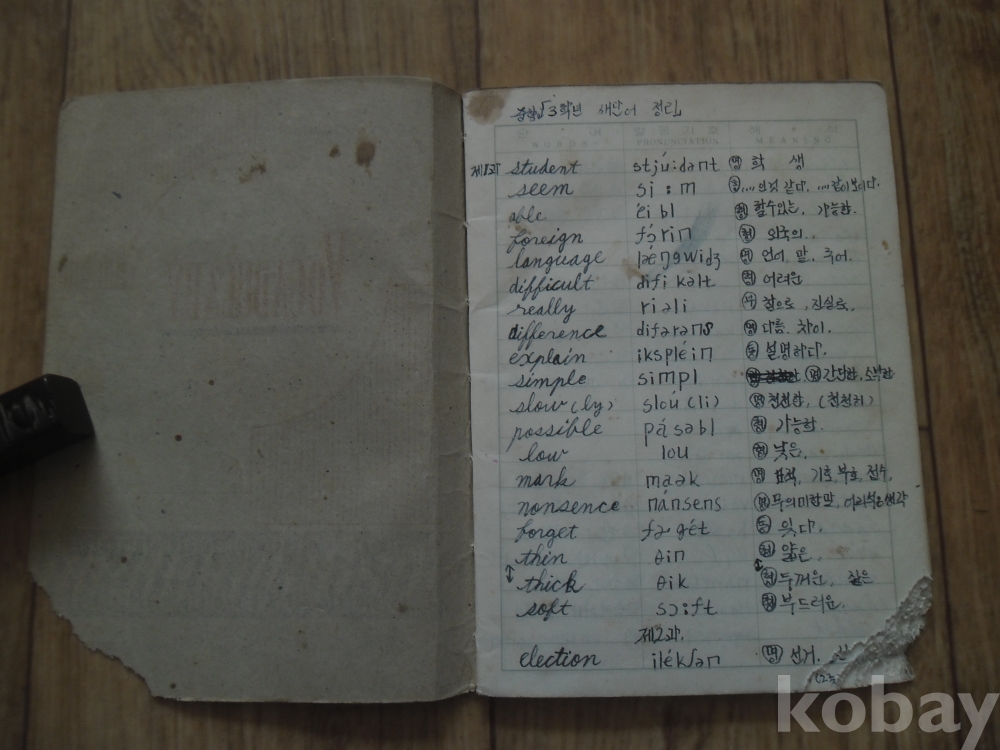 중학 3학년 새단어 정리
WORDS PRONUNCIATION MEANING
제1과 student stjú:dənt 명 학생
seem si:m 동 ....의것 같다. ....같이보이다.
able éibl 형 할수있는, 가능한.
foreign fɔ́rin 형 외국의.
language lǽŋgwidʒ 명 언어, 말, 국어.
difficult difikəlt 형 어려운
really riəli 부 참으로, 진실로,
difference difərəns 명 다름. 차이.
explain ikspléin 동 설명하다.
simple simpl 간단한, 소박한
slow(ly) slóu(li) 천천한, (천천히)
possible pásəbl 형 가능한.
low lou 형 낮은.
mark maək 명 표적, 기호, 부호, 점수,
nonsence nánsens 명 무의미한말, 어리석은생각
forget fəgét 동 잊다.
thin θin 형 얇은.
↕ thick θik 형 두꺼운, 짙은
soft sɔ:ft 형 부드러운.
제2과.
election ilékʃən 명 선거.
kobay